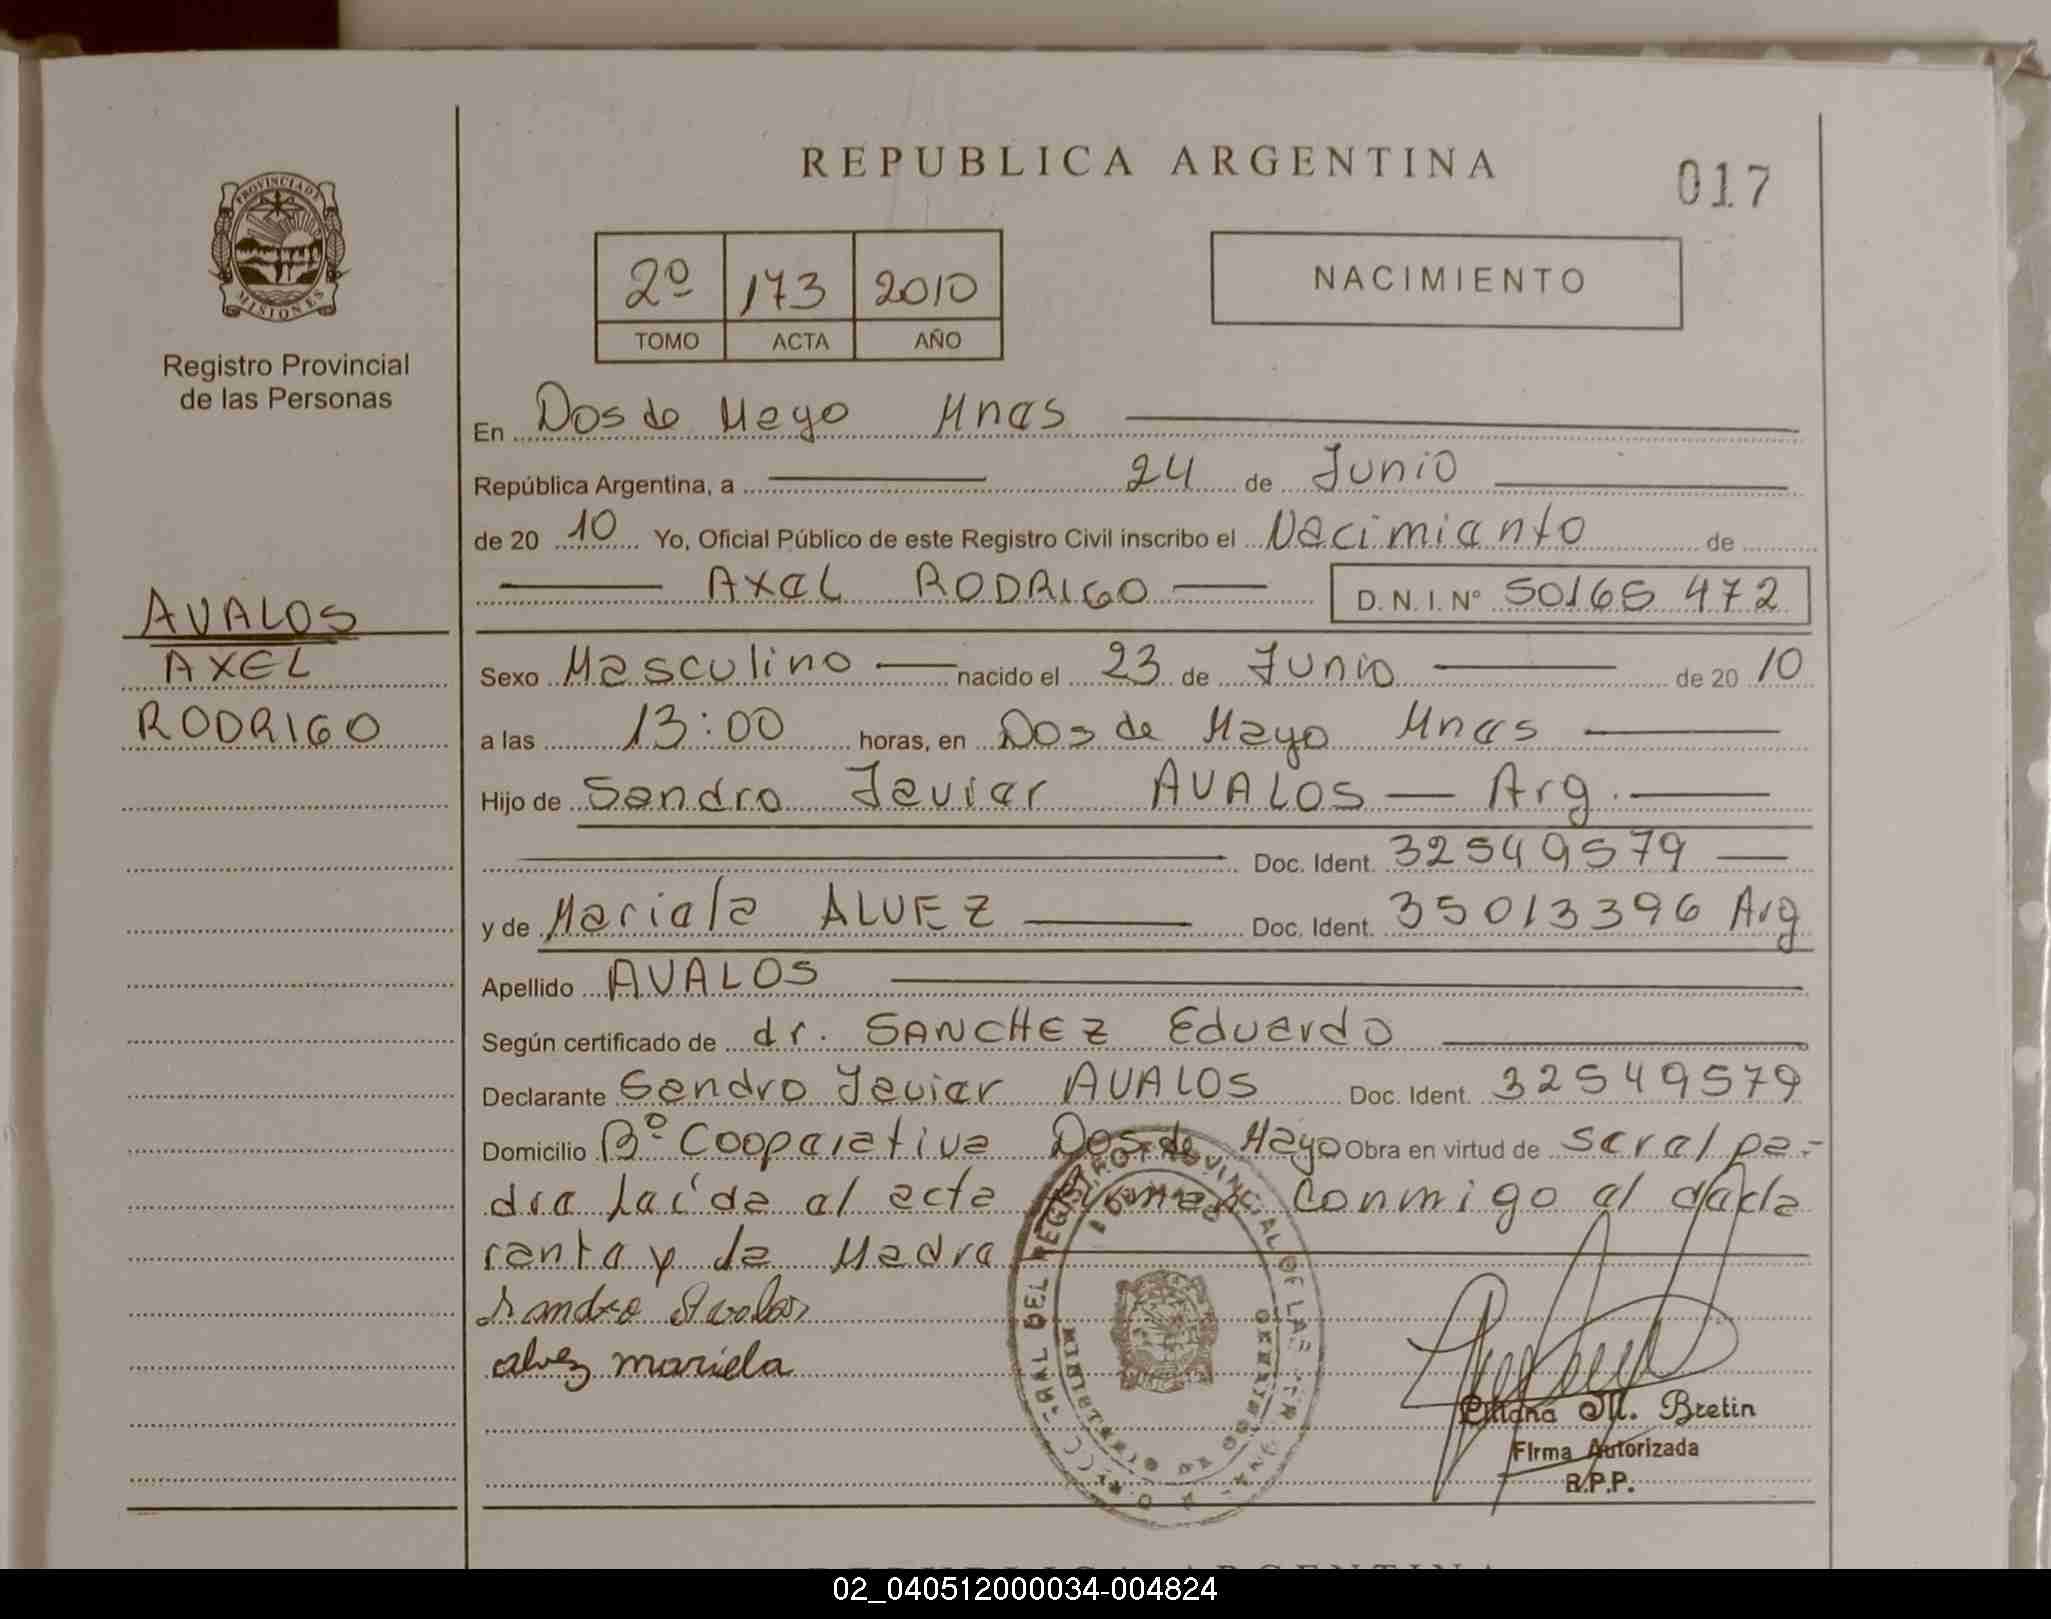 REPUBLICA ARGENTINA
017
PROVINCIA DE
MISIONES
Registro Provincial
de las Personas
2º 173 2010
TOMO ACTA AÑO
NACIMIENTO
En Dos de Mayo Mnes
República Argentina, a 24 de Junio
de 20 10 Yo, Oficial Público de este Registro Civil inscribo el Nacimiento de
AXEL RODRIGO D.N.I. Nº 50165 472
AVALOS
AXEL
RODRIGO
Sexo Masculino nacido el 23 de Junio de 20 10
a las 13:00 horas, en Dos de Mayo Mnes
Hijo de Sandro Javier AVALOS Arg.
Doc. Ident. 32549579
y de Mariela ALVEZ Doc. Ident. 35013396 Arg
Apellido AVALOS
Según certificado de dr. SANCHEZ Eduardo
Declarante Sandro Javier AVALOS Doc. Ident. 32549579
Domicilio Bº Cooperativa Dos de Mayo Obra en virtud de ser el pa-
dre Leída el acta firman conmigo el decla
rante y la Madre
Sandro Avalos
alvez mariela
REGISTRO PROVINCIAL DE LAS
Liliana M. Bretin
Firma Autorizada
R.P.P.
REPUBLICA ARGENTINA
02_040512000034-004824